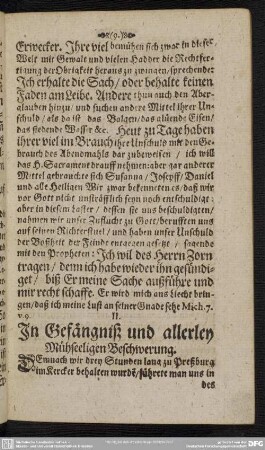 9.
Erwecker. Ihre viel bemühen sich zwar in dieser
Welt mit Gewalt und vielen Hadder die Rechtfer-
tigung der Obrigkeit heraus zu zwingen/sprechende:
Ich erhalte die Sach/oder behalte keinen
Faden am Leibe. Andere thun auch den Aber-
glauben hinzu/und suchen andere Mittel ihrer Un-
schuld/als da ist das Balgen/das glüende Eisen/
das siedende Wasser &c. Heut zu Tage haben
ihrer viel im Brauch ihre Unschuld mit den Ge-
brauch des Abendmahls zu beweisen/ich will
das H. Sacrament drauff nehmen: aber gar anderer
Mittel gebrauchte sich Susanna/Joseph/Daniel
und alle Heiligen Wir zwar bekenneten es/daß wir
vor Gott nicht unsträfflich seyn noch entschuldigt:
aber in diesem Laster/dessen sie uns beschuldigten/
nahmen wir unser Zuflucht zu Gott/berufften uns
auf seinen Richterstuel/und haben unser Unschuld
der Boßheit der Feinde entgegen gesetzt/sagende
mit den Propheten: Ich will des Herrn Zorn
tragen/denn ich habe wieder ihn gesündi-
get/biß Er meine Sache außführe und
mir recht schaffe. Er wird mich ans Liecht brin-
gen/daß ich meine Lust an seiner Gnade sehe Mich. 7.
v. 9.
II.
In Gefängniß und allerley
Mühseeligen Beschwerung.
DEmnach wir drey Stunden lang zu Preßburg
im Kercker behalten wurdē/führete man uns in
des